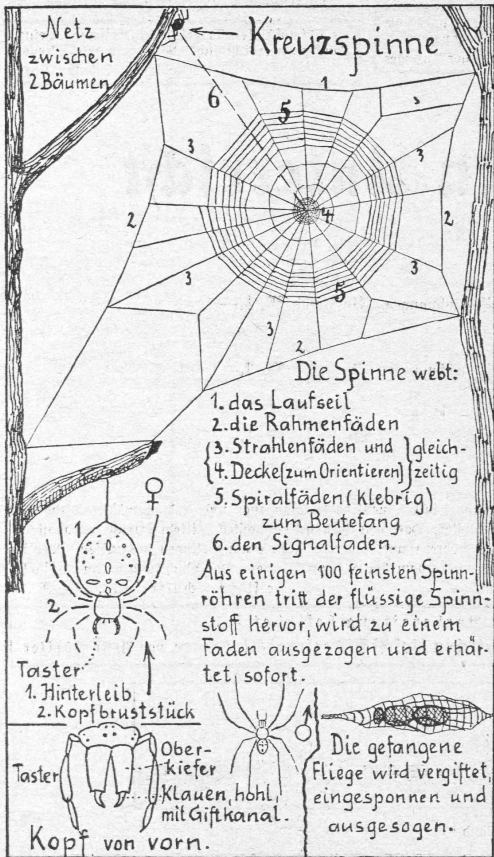 Netz
zwischen
2 Bäumen
Kreuzspinne
1
6
5
3
3
3
2
4
2
3
3
5
3
2
Die Spinne webt:
1. das Laufseil
2. die Rahmenfäden
{3. Strahlenfäden und } gleich-
{4. Decke (zum Orientieren) } zeitig
5. Spiralfäden (klebrig)
zum Beutefang
6. den Signalfaden.
Aus einigen 100 feinsten Spinn-
röhren tritt der flüssige Spinn-
stoff hervor, wird zu einem
Faden ausgezogen und erhär-
tet sofort.
♀
1
2
Taster
1. Hinterleib
2. Kopfbruststück
Taster
Ober-
kiefer
Klauen, hohl,
mit Giftkanal.
Kopf von vorn.
♂
Die gefangene
Fliege wird vergiftet,
eingesponnen und
ausgesogen.